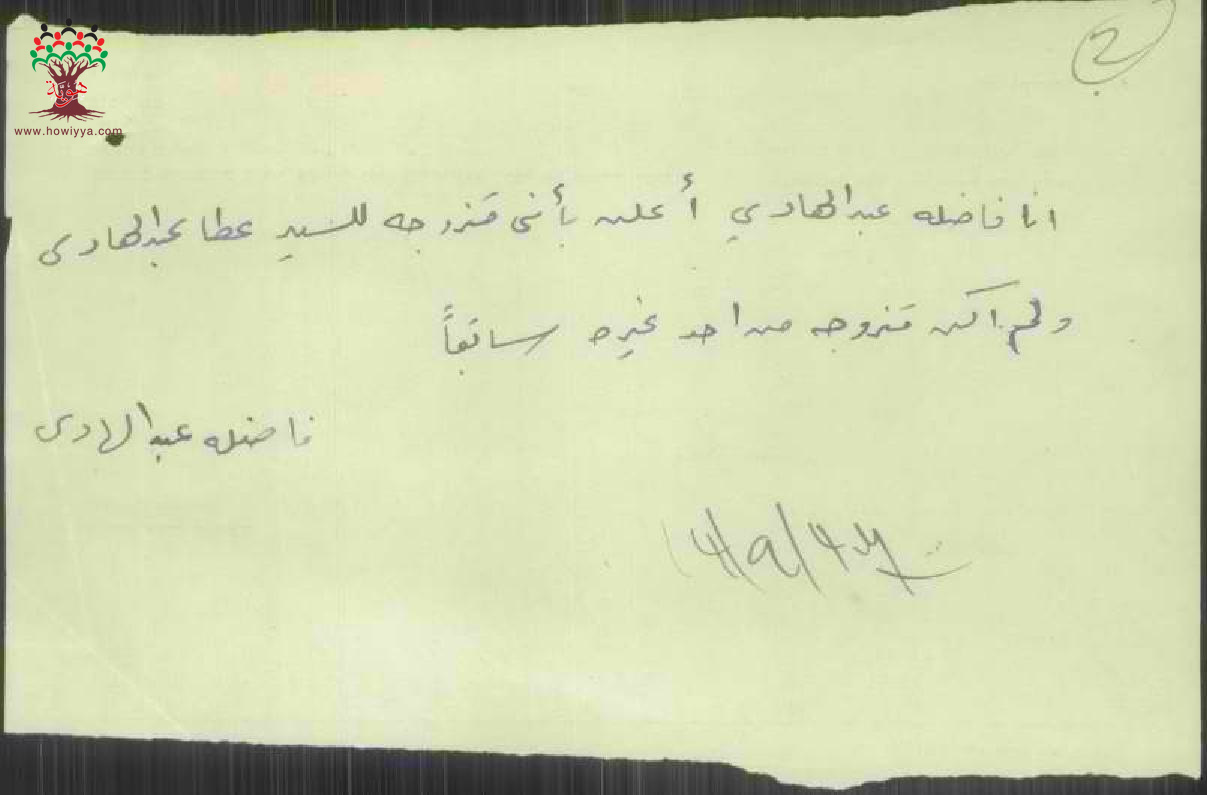 2
هوية
www.howiyya.com
انا فاضله عبدالهادي أعلن بأنني متزوجه للسيد عطا عبدالهادى
ولم اكن متزوجه من احد غيره سابقاً
فاضله عبدالهادى